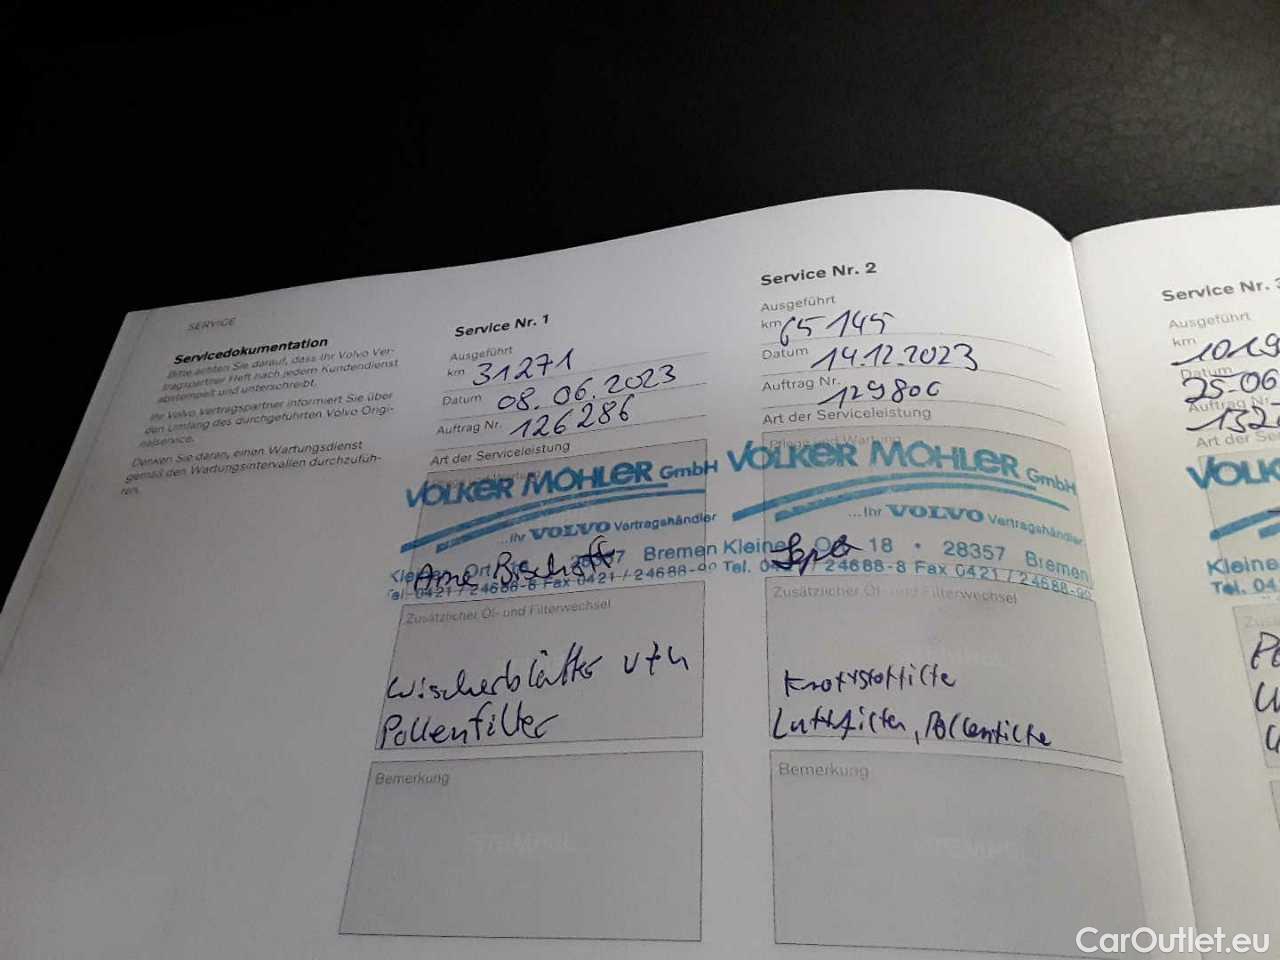 SERVICE
Servicedokumentation
Bitte achten Sie darauf, dass Ihr Volvo Ver-
tragspartner Heft nach jedem Kundendienst
abstempelt und unterschreibt.
Ihr Volvo Vertragspartner informiert Sie über
den Umfang des durchgeführten Volvo Origi-
nalservice.
Denken Sie daran, einen Wartungsdienst
gemäß den Wartungsintervallen durchzufüh-
ren.
Service Nr. 1
Ausgeführt
km 31271
Datum 08.06.2023
Auftrag Nr. 126286
Art der Serviceleistung
VOLKER MOHLER GmbH
...Ihr VOLVO Vertragshändler
Arne Bischoff
Bremen
Tel. 0421/24688-8 Fax 0421/24688-90
Zusätzlicher Öl- und Filterwechsel
Wischerblätter v+h
Pollenfilter
Bemerkung
STEMPEL
Service Nr. 2
Ausgeführt
km 65145
Datum 14.12.2023
Auftrag Nr. 129800
Art der Serviceleistung
Pflege und Wartung
VOLKER MOHLER GmbH
...Ihr VOLVO Vertragshändler
Kleiner Ort 18 • 28357 Bremen
Tel. 0421/24688-8 Fax 0421/24688-90
Zusätzlicher Öl- und Filterwechsel
Kraftstoffilte
Luftfilter, Pollenfilte
Bemerkung
STEMPEL
Service Nr. 3
Ausgeführt
km 1019
Datum 25.06
Auftrag Nr. 132
Art der Se
VOLK
Kleine
Tel. 04
CarOutlet.eu